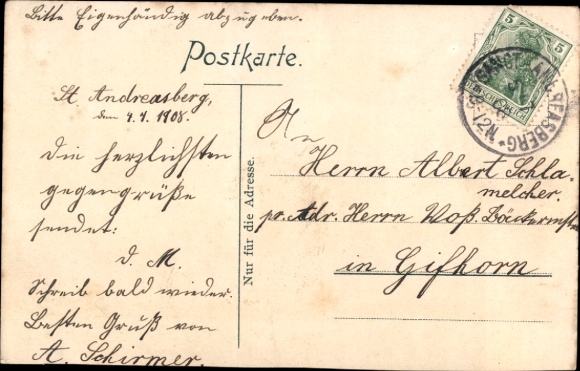 Bitte Eigenhändig abzugeben.
Postkarte.
5 5
DEUTSCHES REICH
SANCT ANDREASBERG
St. Andreasberg,
den 4.4.1908.
Die herzlichsten
gegengrüße
sendet:
D. M.
Schreib bald wieder.
Besten Gruß von
A. Schirmer.
Nur für die Adresse.
An
Herrn Albert Schla-
melcher.
pr. Adr. Herrn Voß. Bäckermstr
in Gifhorn